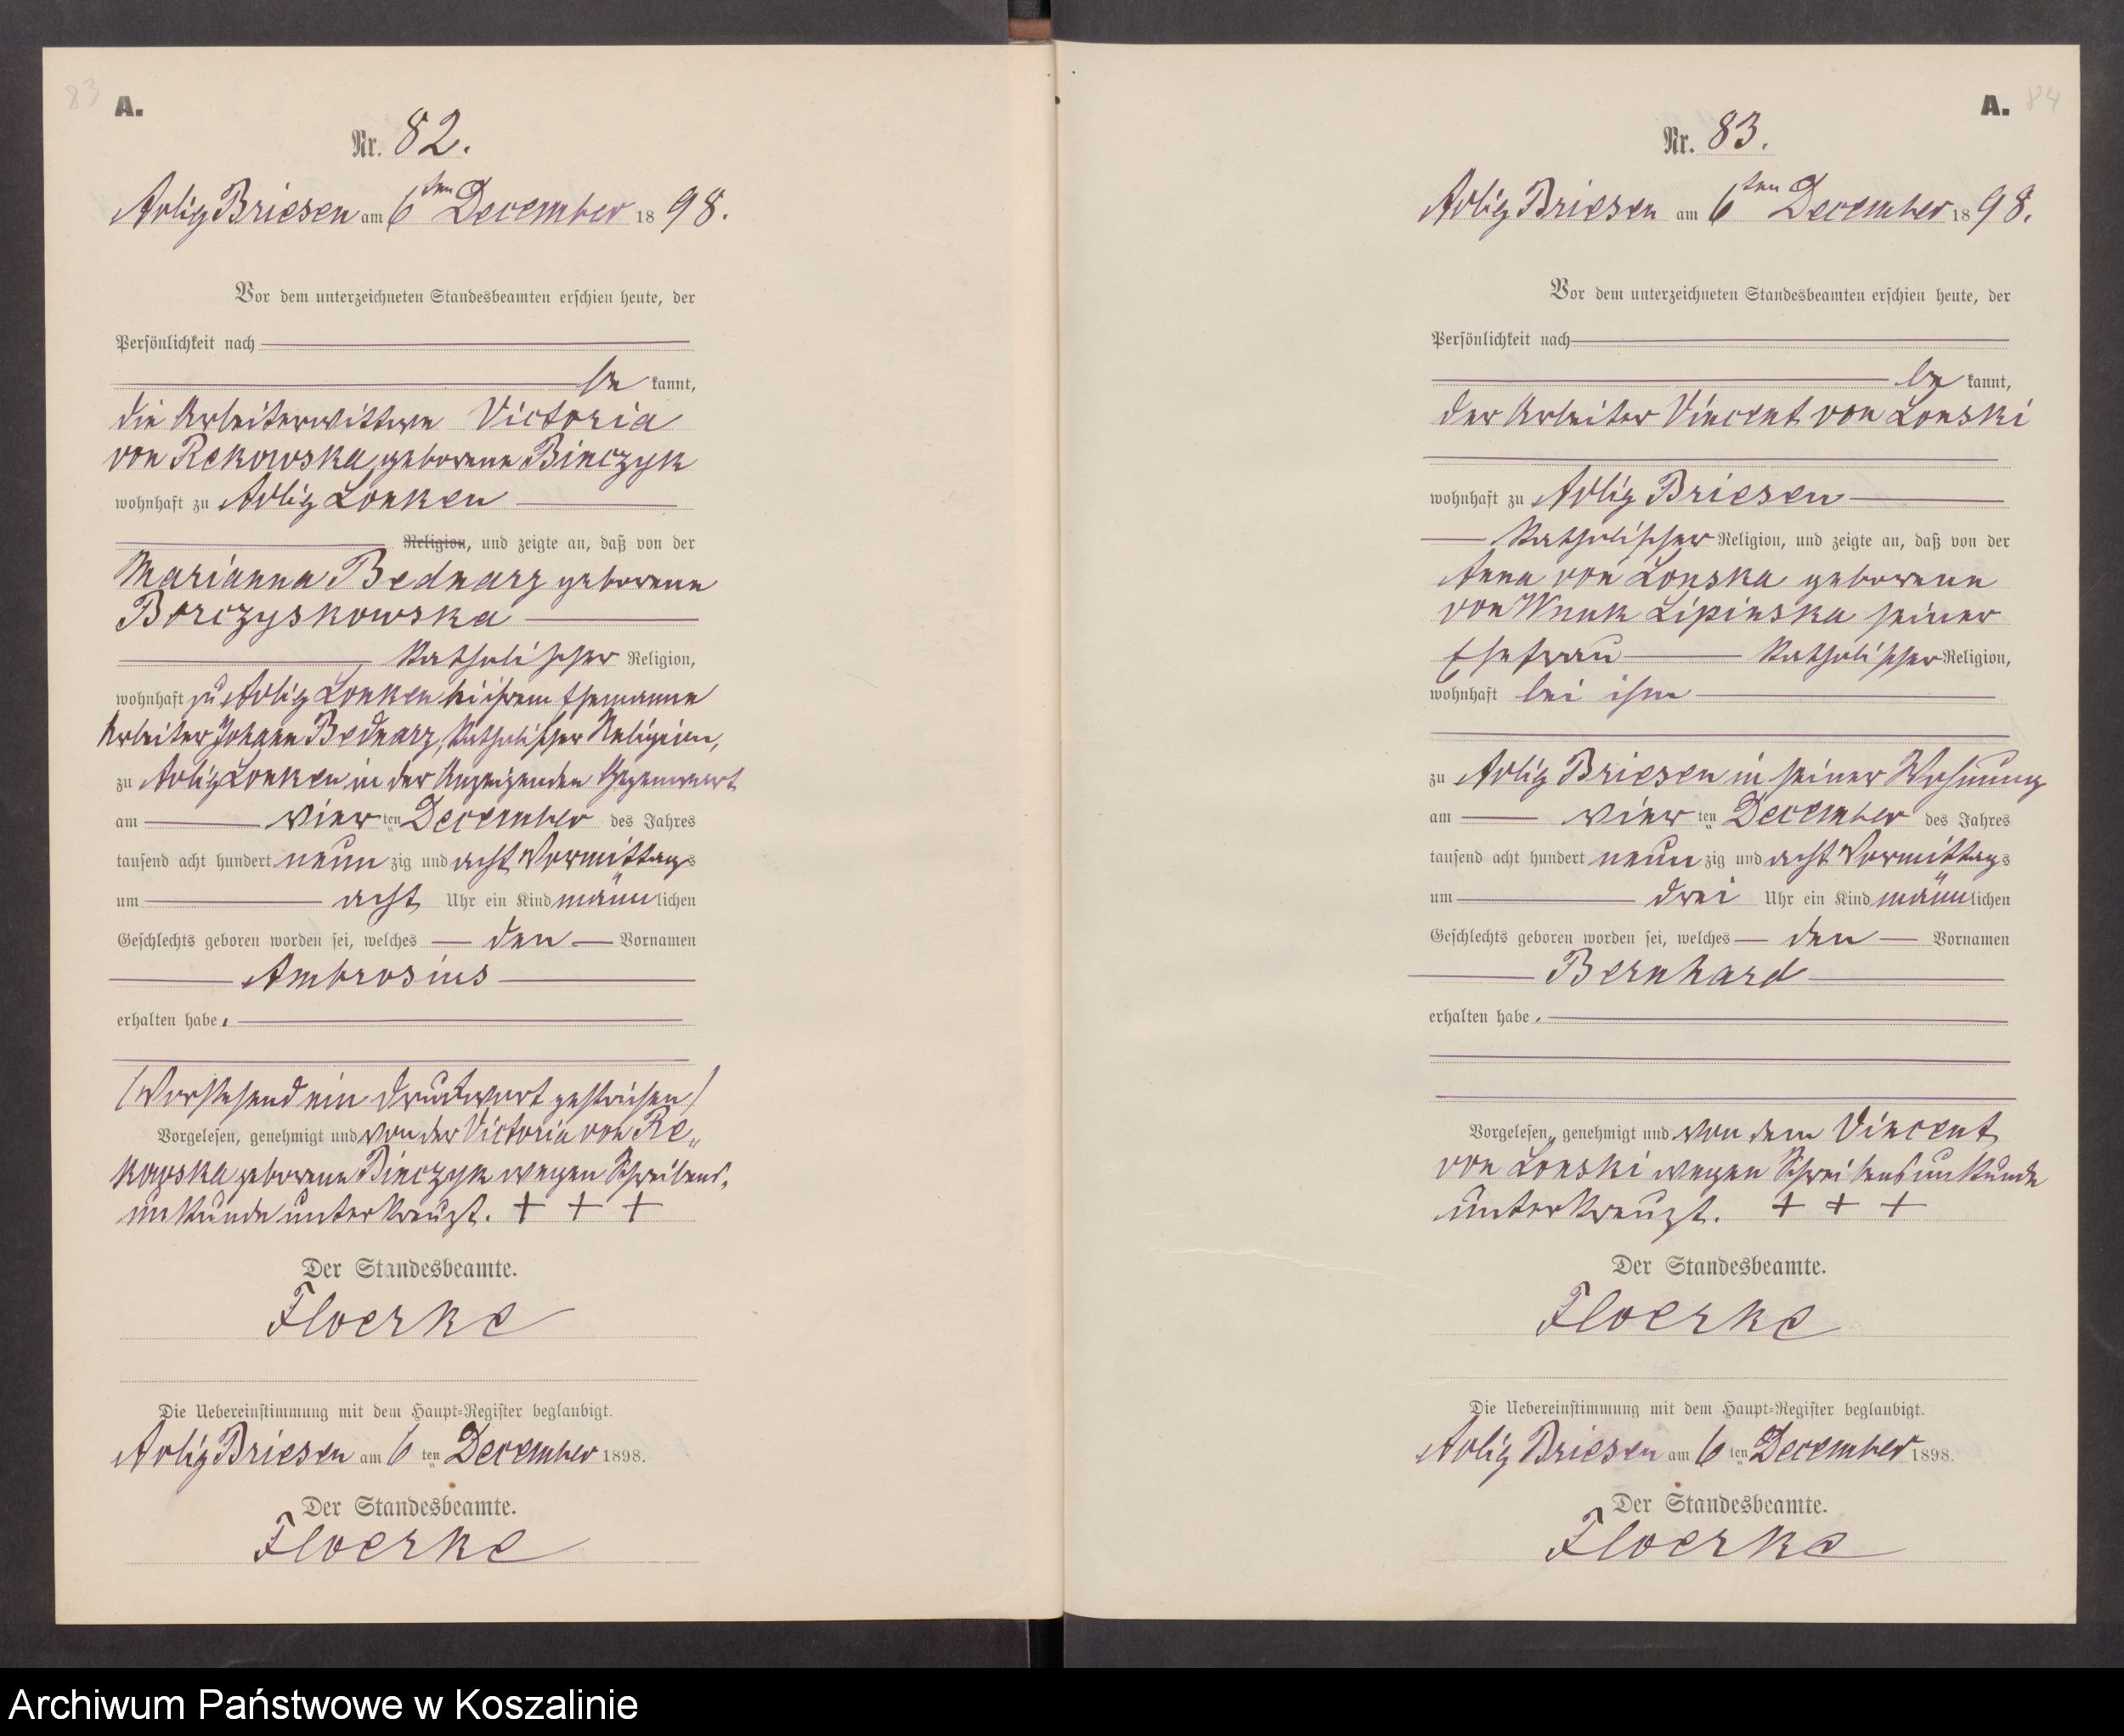 83
A.
Nr. 82.
Adlig Briesen am 6ten December 1898.
Vor dem unterzeichneten Standesbeamten erschien heute, der
Persönlichkeit nach
be kannt,
die Arbeiterwittwe Victoria
von Rekowska geborene Binczyk
wohnhaft zu Adlig Lonken
Religion, und zeigte an, daß von der
Marianna Bednarz geborene
Borczyskowska
katholischer Religion,
wohnhaft zu Adlig Lonken bei ihrem Ehemanne
Arbeiter Johann Bednarz, katholischer Religion,
zu Adlig Lonken in der Anzeigenden Gegenwart
am vier ten December des Jahres
tausend acht hundert neun zig und acht Vormittags
um acht Uhr ein Kind männlichen
Geschlechts geboren worden sei, welches den Vornamen
Ambrosius
erhalten habe.
(Vorstehend ein Druckwort gestrichen)
Vorgelesen, genehmigt und von der Victoria von Re„
kowska geborene Binczyk wegen Schreibens„
unkunde unterkreuzt. + + +
Der Standesbeamte.
Floerke
Die Uebereinstimmung mit dem Haupt-Register beglaubigt.
Adlig Briesen am 6 ten December 1898.
Der Standesbeamte.
Floerke
A. 84
Nr. 83.
Adlig Briesen am 6ten December 1898.
Vor dem unterzeichneten Standesbeamten erschien heute, der
Persönlichkeit nach
be kannt,
der Arbeiter Vincent von Lonski
wohnhaft zu Adlig Briesen
katholischer Religion, und zeigte an, daß von der
Anna von Lonska geborene
von Wnuk Lipinska seiner
Ehefrau katholischer Religion,
wohnhaft bei ihm
zu Adlig Briesen in seiner Wohnung
am vier ten December des Jahres
tausend acht hundert neun zig und acht Vormittags
um drei Uhr ein Kind männlichen
Geschlechts geboren worden sei, welches den Vornamen
Bernhard
erhalten habe.
Vorgelesen, genehmigt und von dem Vincent
von Lonski wegen Schreibensunkunde
unterkreuzt. + + +
Der Standesbeamte.
Floerke
Die Uebereinstimmung mit dem Haupt-Register beglaubigt.
Adlig Briesen am 6 ten December 1898.
Der Standesbeamte.
Floerke
Archiwum Państwowe w Koszalinie